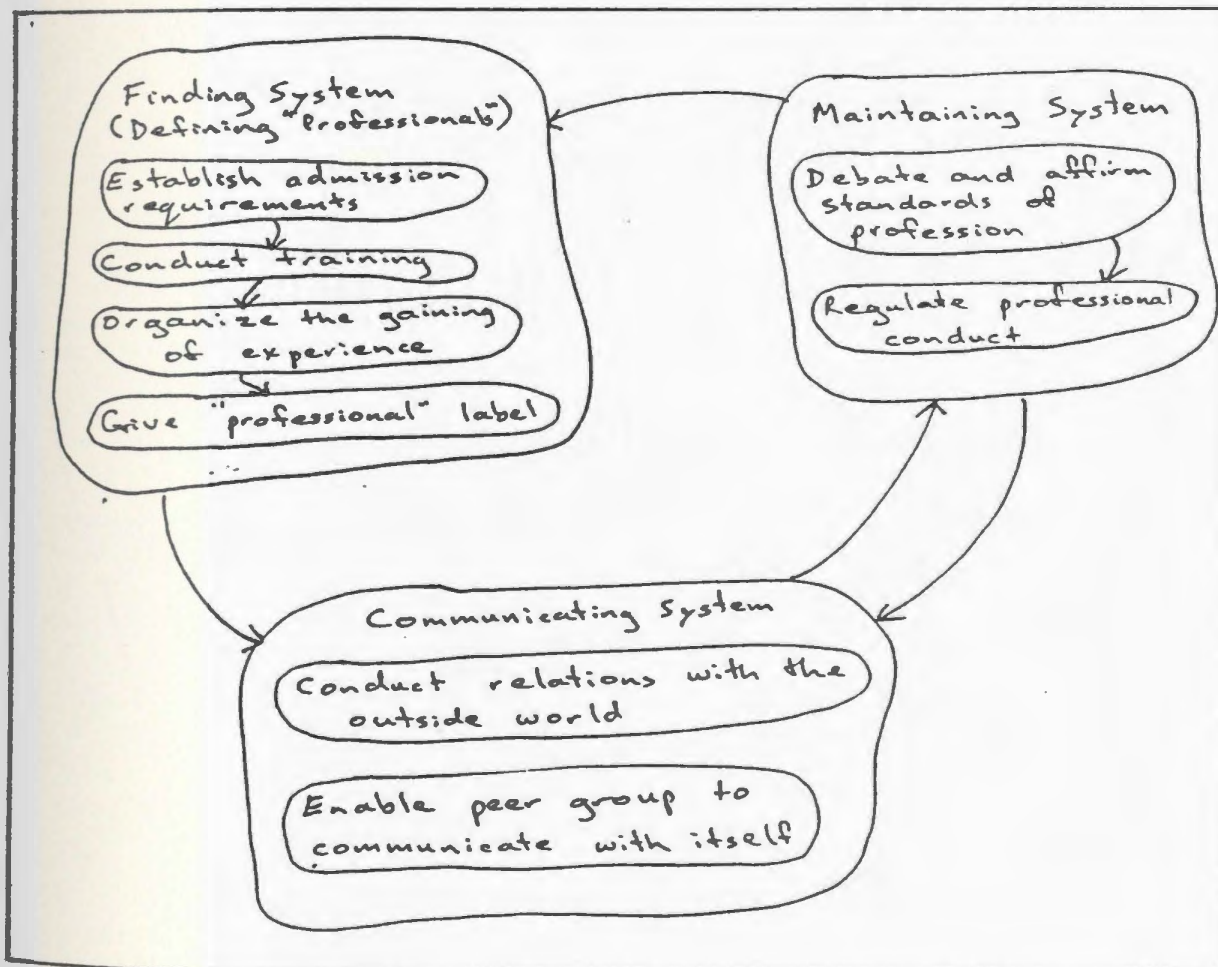 Finding System
(Defining "Professionals")
Establish admission
requirements
Conduct training
Organize the gaining
of experience
Give "professional" label
Maintaining System
Debate and affirm
standards of
profession
Regulate professional
conduct
Communicating System
Conduct relations with the
outside world
Enable peer group to
communicate with itself